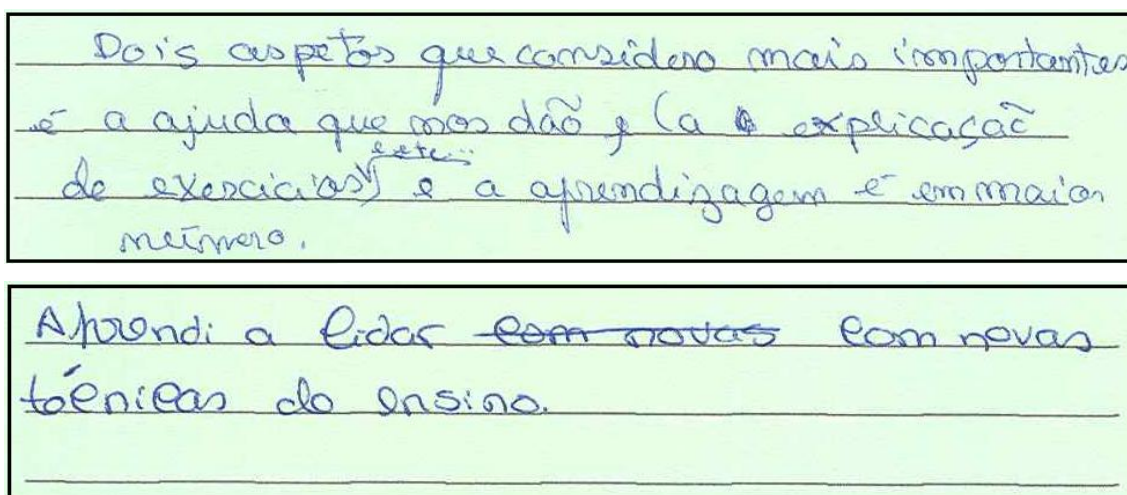 Dois aspetos que considero mais importantes
é a ajuda que nos dão, (a explicação
de exercícios) e a aprendizagem é em maior
número.
Aprendi a lidar com novas com novas
técnicas de ensino.